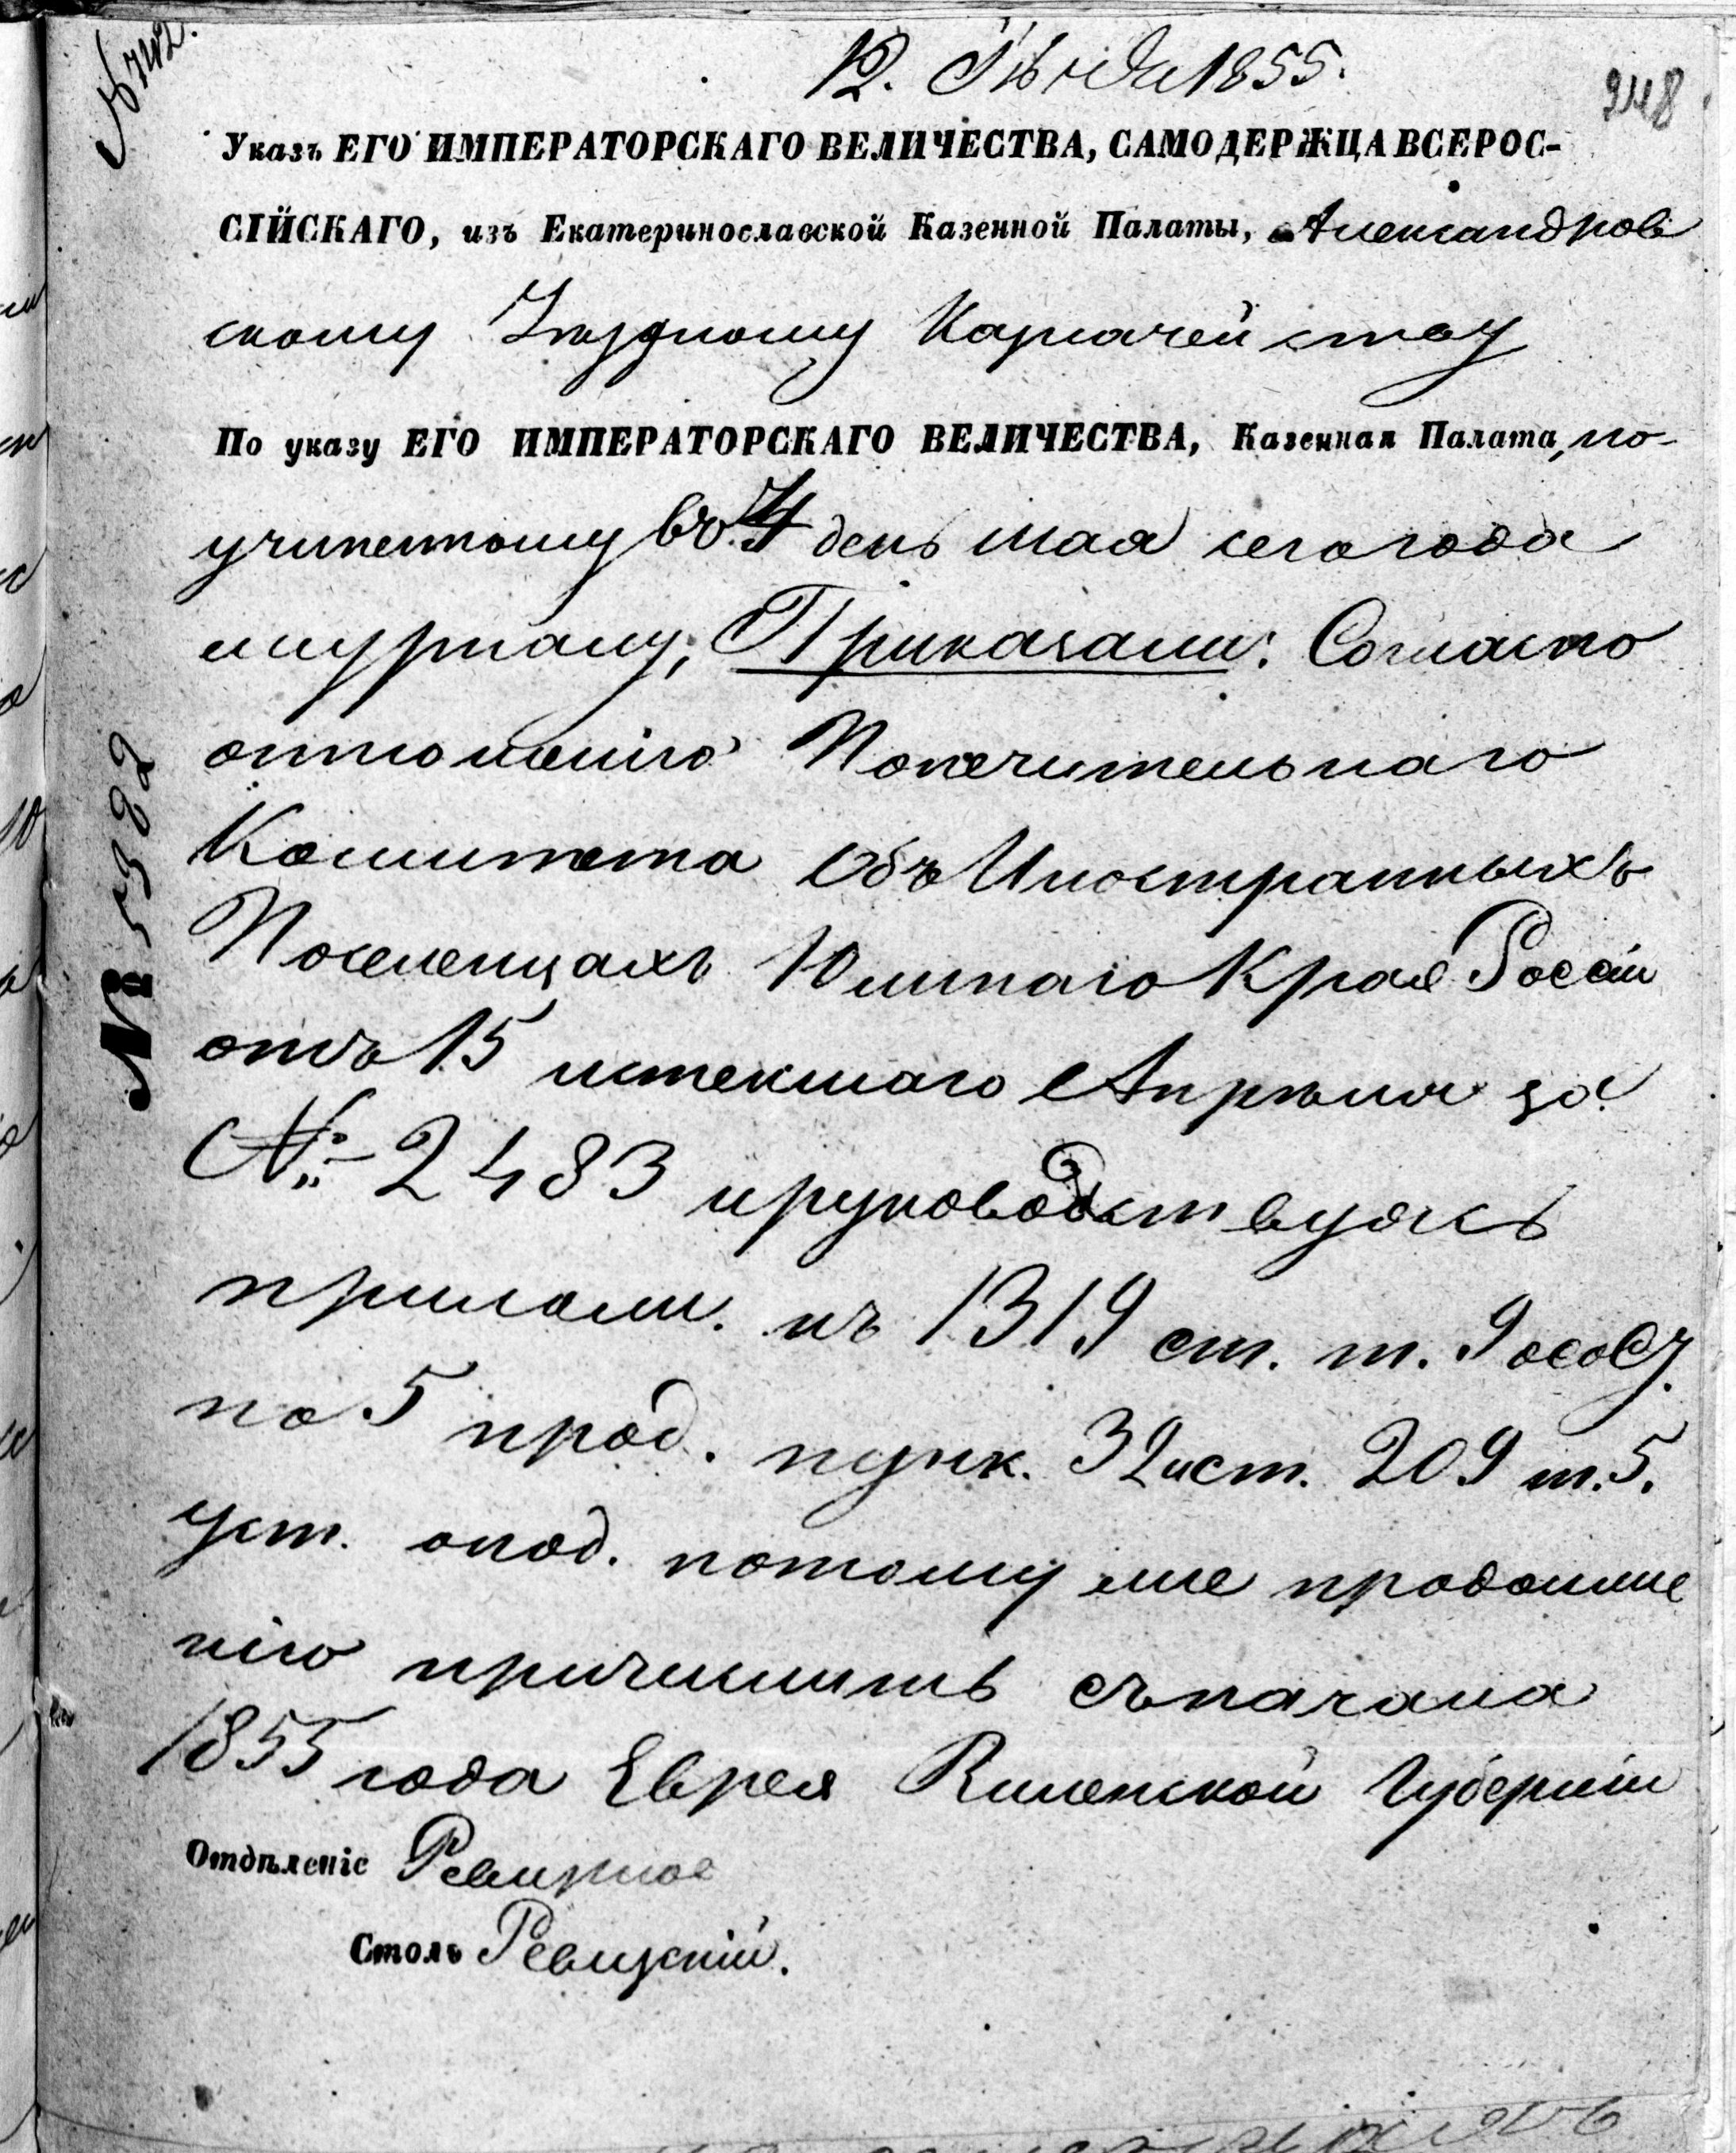 № 742.
12. 1855.
248
Указъ ЕГО ИМПЕРАТОРСКАГО ВЕЛИЧЕСТВА, САМОДЕРЖЦА ВСЕРОС-
СІЙСКАГО, изъ Екатеринославской Казенной Палаты, Александров
скому Уѣздному Казначейству
По указу ЕГО ИМПЕРАТОРСКАГО ВЕЛИЧЕСТВА, Казенная Палата, по
учиненному въ 4 день мая сего года
журналу, Приказали: Согласно
отношенію Попечительнаго
Комитета Объ Иностранныхъ
Поселенцахъ Южнаго Края Россіи
отъ 15 истекшаго Апрѣля за
№ 2483 и руководствуясь
прилож. къ 1319 ст. т. 9 о сос.
по 5 прод. пунк. 3 ст. 209 т. 5.
уст. о под. потому же продолже
нію причислить съ начала
1855 года Еврея Виленской Губерніи
Отдѣленіе Ревизное
Столъ Ревизскій.
№ 5382